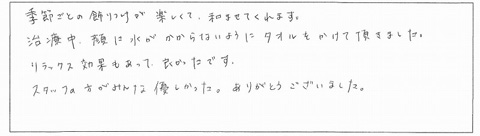 季節ごとの飾りつけが楽しくて、和ませてくれます。
治療中、顔に水がかからないようにタオルをかけて頂きました。
リラックス効果もあって、良かったです。
スタッフの方がみんな優しかった。ありがとうございました。